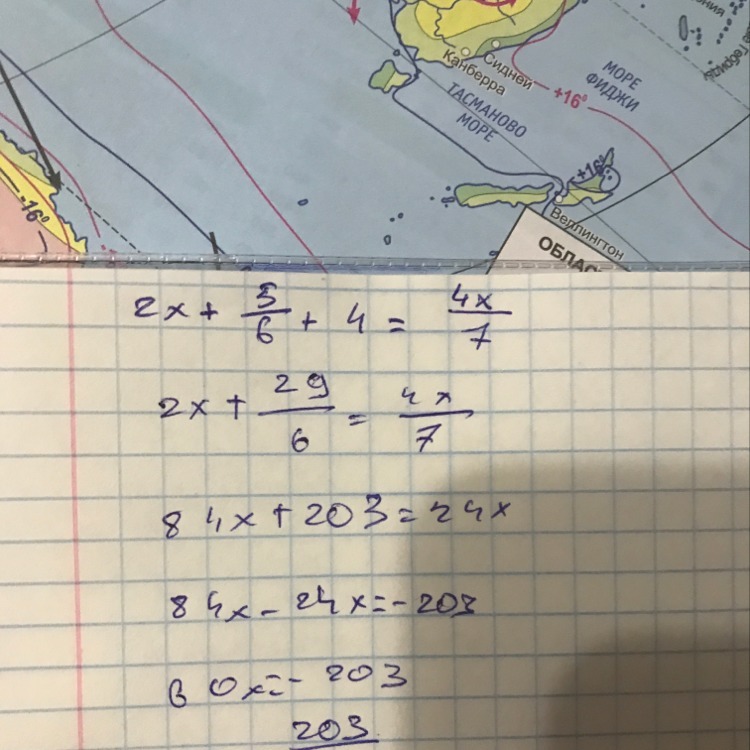 Сидней
Канберра
МОРЕ
ФИДЖИ
+16°
ТАСМАНОВО
МОРЕ
+16°
-16°
Веллингтон
ОБЛАС
2x + 5/6 + 4 = 4x/7
2x + 29/6 = 4x/7
84x + 203 = 24x
84x - 24x = - 203
60x = - 203
203